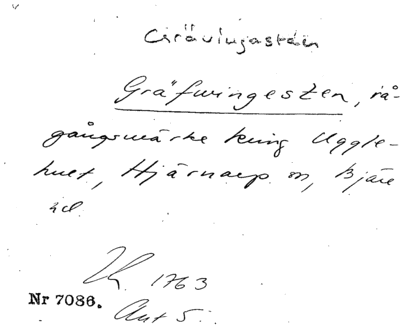 Grävlingastén
Gräfwingesten, rå-
gångsmärke kring Uggle-
hult, Hjärnarp sn, Bjäre
hd
1763
Nr 7086.
Akt 5.